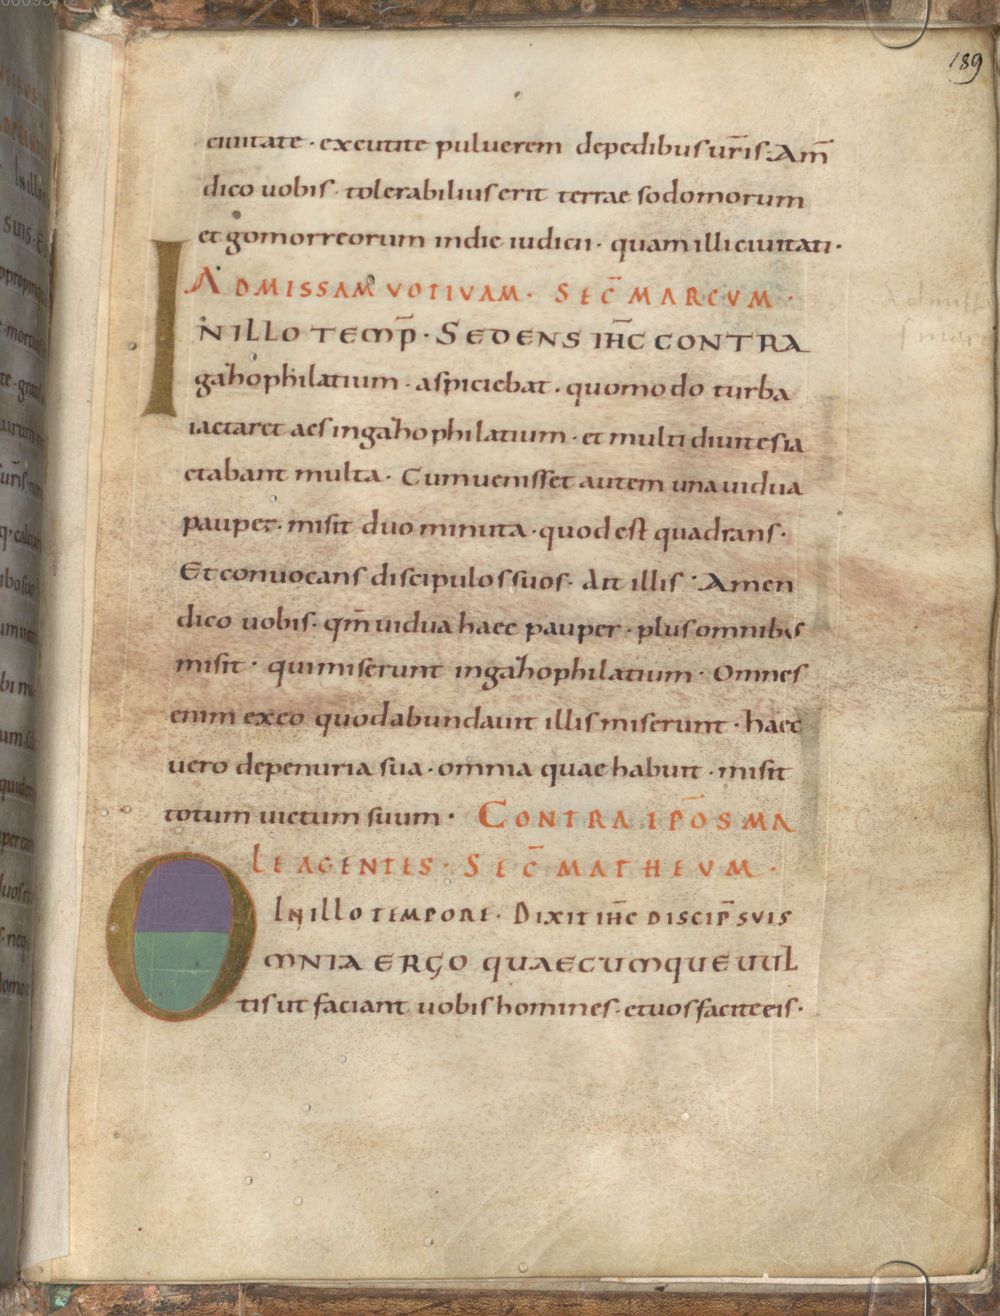 189
ciuitate · excutite puluerem depedibus ur̄is · Am̄
dico uobis · tolerabilius erit terrae sodomorum
et gomorreorum in die iudicii · quam illi ciuitati ·
AD MISSAM VOTIVAM · SEC̄ MARCVM ·
IN ILLO TEMP̄ · SEDENS IH̄C CONTRA
gazophilatium · aspiciebat · quomodo turba
iactaret aes ingazophilatium · et multi diuites ia
ctabant multa · Cum uenisset autem una uidua
pauper · misit duo minuta · quod est quadrans ·
Et conuocans discipulos suos · Ait illis · Amen
dico uobis · qm̄ uidua haec pauper · plus omnibus
misit · qui miserunt ingazophilatium · Omnes
enim exeo quod abundauit illis miserunt · haec
uero de penuria sua · omnia quae habuit · misit
totum uictum suum · CONTRA EP̄OS MA
LE AGENTES · SEC̄ MATHEVM ·
IN illo TEMPORE · DIXIT IH̄C DISCIP̄ SVIS
OMNIA ERGO QUAECUMQUE UUL
tis ut faciant uobis homines · et uos facite eis ·